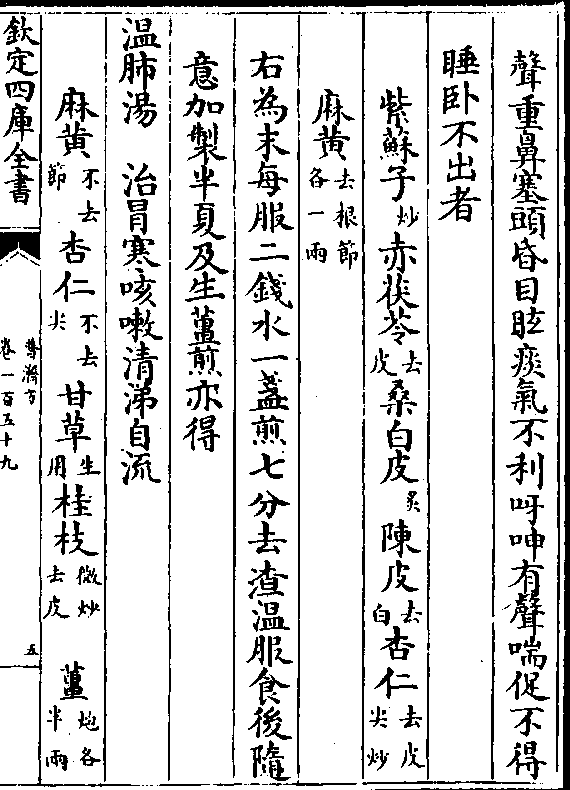 聲重鼻塞頭昏目眩痰氣不利呀呷有聲喘促不得
睡卧不出者
紫蘇子炒赤茯苓去皮桑白皮炙陳皮去白杏仁去皮尖炒
麻黄去根節各一兩
右為末每服二錢水一盞煎七分去渣温服食後隨
意加製半夏及生薑煎亦得
温肺湯 治冒寒咳嗽清涕自流
麻黄不去節杏仁不去尖甘草生用桂枝微炒去皮薑炮各半兩
欽定四庫全書
普濟方
卷一百五十九
五